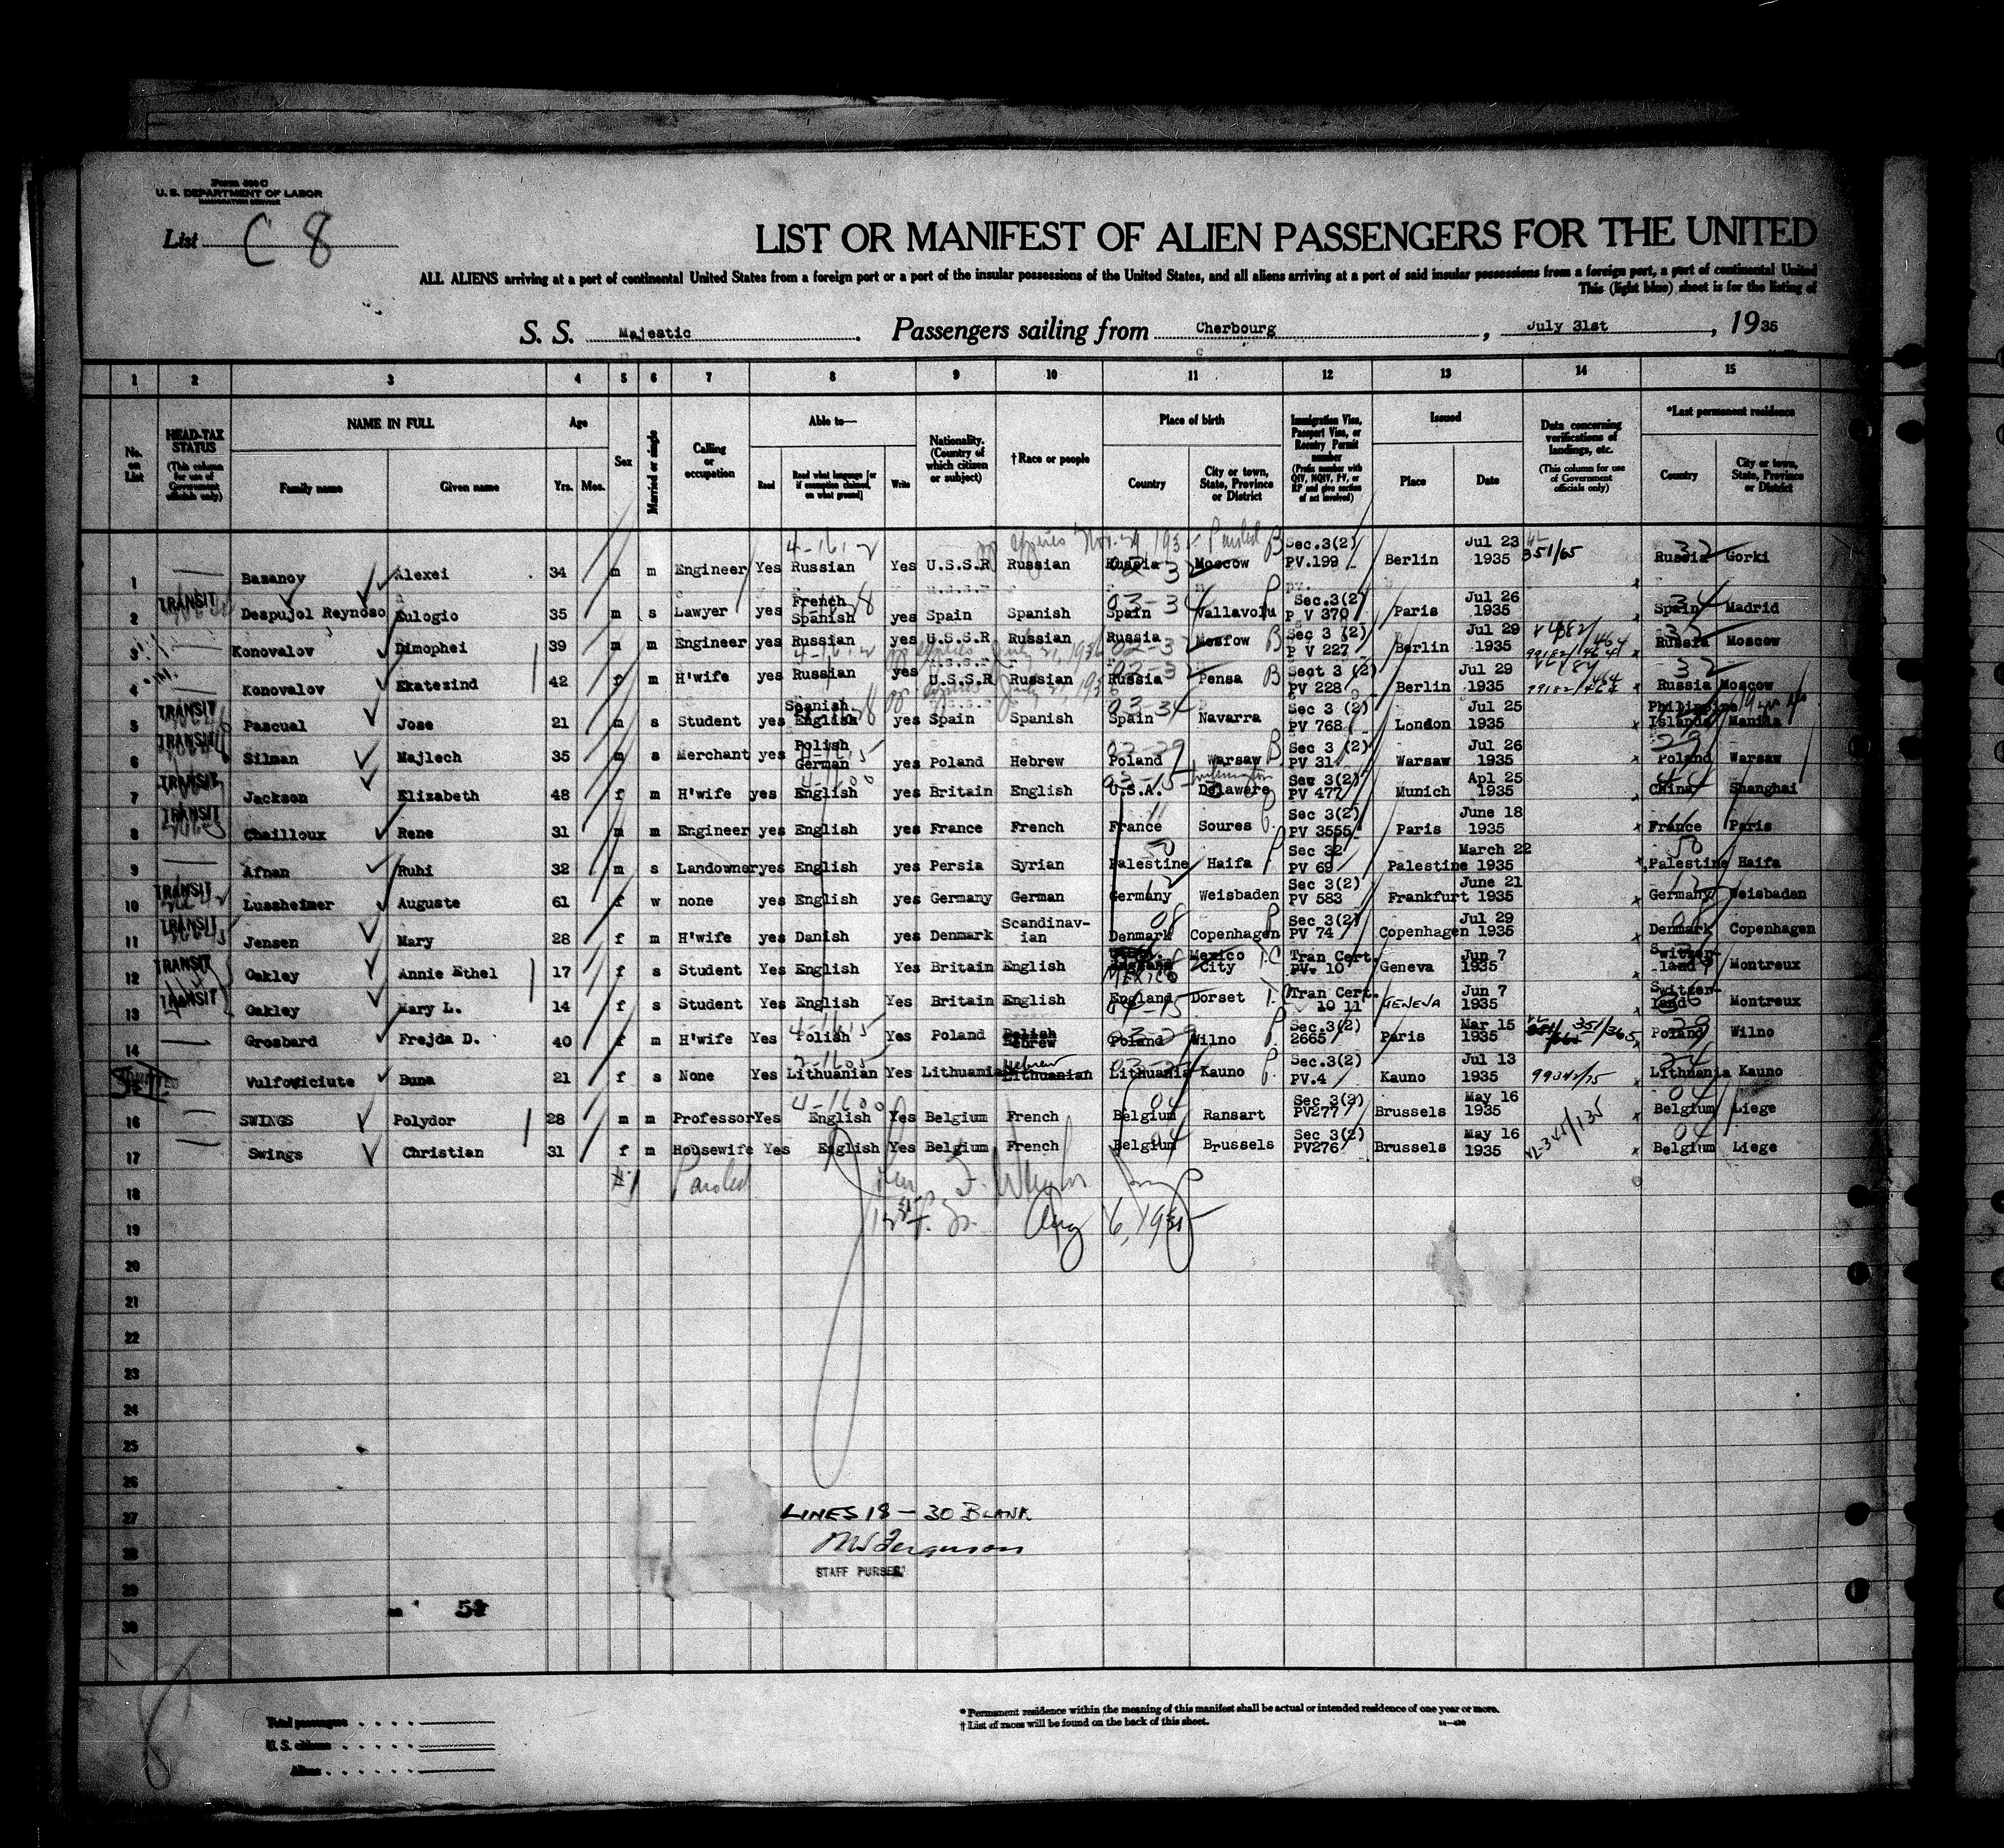 Form 500 C
U. S. DEPARTMENT OF LABOR
IMMIGRATION SERVICE
List C 8
LIST OR MANIFEST OF ALIEN PASSENGERS FOR THE UNITED
ALL ALIENS arriving at a port of continental United States from a foreign port or a port of the insular possessions of the United States, and all aliens arriving at a port of said insular possessions from a foreign port, a port of continental United
This (light blue) sheet is for the listing of
S. S. Majestic. Passengers sailing from Cherbourg, July 31st, 1935
1 2 3 4 5 6 7 8 9 10 11 12 13 14 15
No. on List
HEAD-TAX STATUS (This column for use of Government officials only)
NAME IN FULL Family name Given name
Age Yrs. Mos.
Sex
Married or single
Calling or occupation
Able to— Read Read what language [or if exemption claimed, on what ground] Write
Nationality. (Country of which citizen or subject)
†Race or people
Place of birth Country City or town, State, Province or District
Immigration Visa, Passport Visa, or Reentry Permit number (Prefix number with QIV, NQIV, PV, or RP and give section of act involved)
Issued Place Date
Data concerning verifications of landings, etc. (This column for use of Government officials only)
*Last permanent residence Country City or town, State, Province or District
1 Bazanov Alexei 34 m m Engineer Yes Russian Yes U.S.S.R Russian Russia Moscow Sec.3(2) PV.199 Berlin Jul 23 1935 351/65 Russia Gorki
2 TRANSIT Despujol Reynoso Eulogio 35 m s Lawyer yes French Spanish yes Spain Spanish Spain Vallavolu Sec.3(2) P V 370 Paris Jul 26 1935 Spain Madrid
3 Konovalov Dimophei 39 m m Engineer yes Russian yes U.S.S.R Russian Russia Mosfow Sec 3 (2) P V 227 Berlin Jul 29 1935 99182/464 Russia Moscow
4 Konovalov Ekatezind 42 f m H'wife yes Russian yes U.S.S.R Russian Russia Pensa Sect 3 (2) PV 228 Berlin Jul 29 1935 99182/464 Russia Moscow
5 TRANSIT Pascual Jose 21 m s Student yes Spanish English yes Spain Spanish Spain Navarra Sec 3 (2) PV 768 London Jul 25 1935 Philippine Islands Manila
6 TRANSIT Silman Majlech 35 m s Merchant yes Polish German yes Poland Hebrew Poland Warsaw Sec 3 (2) PV 31 Warsaw Jul 26 1935 Poland Warsaw
7 TRANSIT Jackson Elizabeth 48 f m H'wife yes English yes Britain English U.S.A. Delaware Sew 3(2) PV 477 Munich Apl 25 1935 China Shanghai
8 TRANSIT Chailloux Rene 31 m m Engineer yes English yes France French France Soures Sec 3(2) PV 3555 Paris June 18 1935 France Paris
9 Afnan Ruhi 32 m s Landowner yes English yes Persia Syrian Palestine Haifa Sec 32 PV 69 Palestine March 22 1935 Palestine Haifa
10 TRANSIT Lussheimer Auguste 61 f w none yes English yes Germany German Germany Weisbaden Sec 3(2) PV 583 Frankfurt June 21 1935 Germany Weisbaden
11 TRANSIT Jensen Mary 28 f m H'wife yes Danish yes Denmark Scandinav-ian Denmark Copenhagen Sec 3(2) PV 74 Copenhagen Jul 29 1935 Denmark Copenhagen
12 TRANSIT Oakley Annie Ethel 17 f s Student Yes English Yes Britain English MEXICO Mexico City Tran Cert. PV. 10 Geneva Jun 7 1935 Switzer-land Montreux
13 TRANSIT Oakley Mary L. 14 f s Student Yes English Yes Britain English England Dorset Tran Cert. 10 11 GENEVA Jun 7 1935 Switzer-land Montreux
14 Grosbard Frejda D. 40 f m H'wife Yes Polish Yes Poland Polish Hebrew Poland Wilno Sec.3(2) 2665 Paris Mar 15 1935 351/365 Poland Wilno
Vulfoviciute Buna 21 f s None Yes Lithuanian Yes Lithuania Hebrew Lithuanian Lithuania Kauno Sec.3(2) PV.4 Kauno Jul 13 1935 99042/15 Lithuania Kauno
16 SWINGS Polydor 28 m m Professor Yes English Yes Belgium French Belgium Ransart Sec 3(2) PV277 Brussels May 16 1935 Belgium Liege
17 Swings Christian 31 f m Housewife Yes English Yes Belgium French Belgium Brussels Sec 3(2) PV276 Brussels May 16 1935 Belgium Liege
18 #1 Paroled
19 Aug 6, 1935
20
21
22
23
24
25
26
27 LINES 18 - 30 BLANK
28 Ferguson
STAFF PURSER
29
30
54
Total passengers
U. S. citizens
Aliens
* Permanent residence within the meaning of this manifest shall be actual or intended residence of one year or more.
† List of races will be found on the back of this sheet.